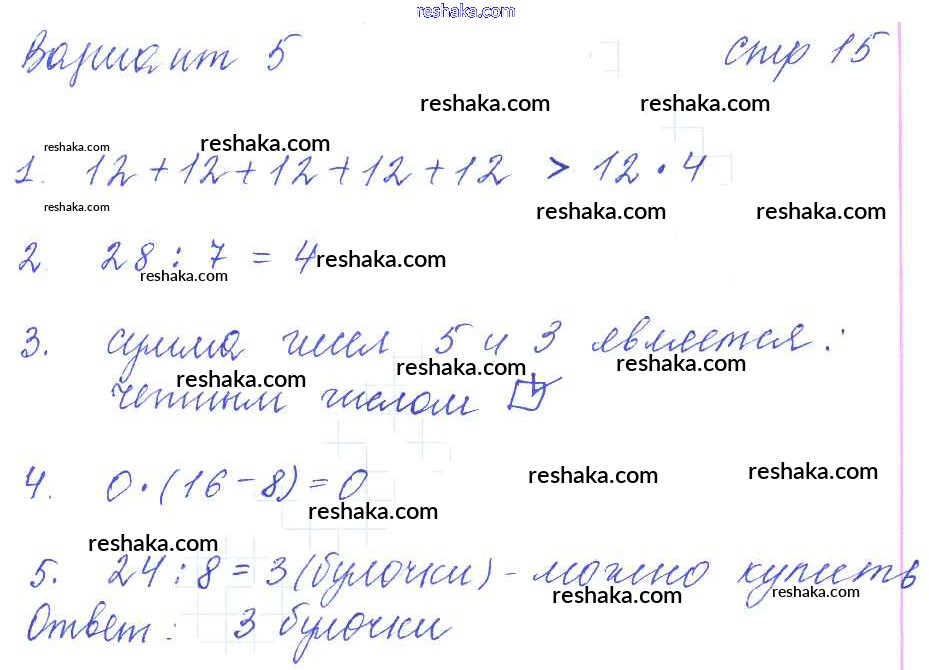 reshaka.com
Вариант 5 стр 15
reshaka.com reshaka.com
reshaka.com reshaka.com
1. 12 + 12 + 12 + 12 + 12 > 12 · 4
reshaka.com reshaka.com reshaka.com
2. 28 : 7 = 4 reshaka.com
reshaka.com
3. сумма чисел 5 и 3 является:
reshaka.com reshaka.com reshaka.com
четным числом
4. 0 · (16 - 8) = 0
reshaka.com reshaka.com
reshaka.com
reshaka.com
5. 24 : 8 = 3 (булочки) - можно купить
reshaka.com reshaka.com
Ответ: 3 булочки